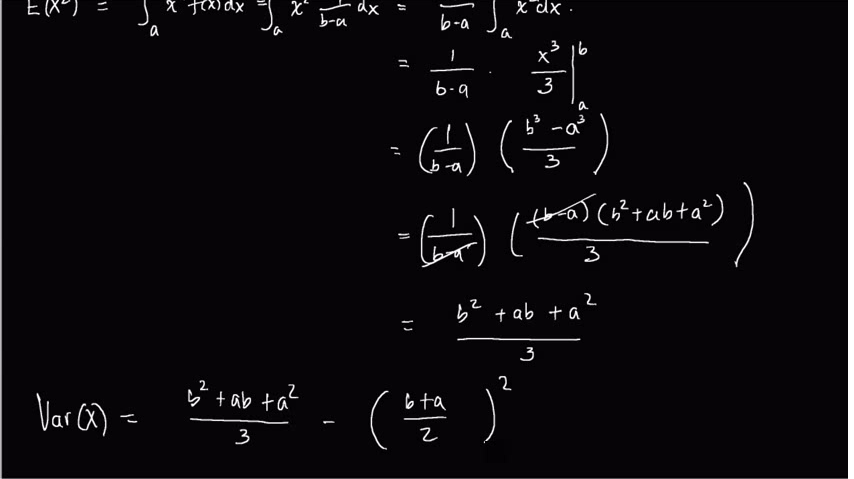 E(X²) = ∫ₐ x² f(x)dx = ∫ₐ x² 1/(b-a) dx = 1/(b-a) ∫ₐ x² dx.
= 1/(b-a) · x³/3 |ₐᵇ
= (1/(b-a)) ((b³ - a³)/3)
= (1/(b-a)) ((b-a)(b² + ab + a²)/3)
= (b² + ab + a²)/3
Var(X) = (b² + ab + a²)/3 - ((b+a)/2)²